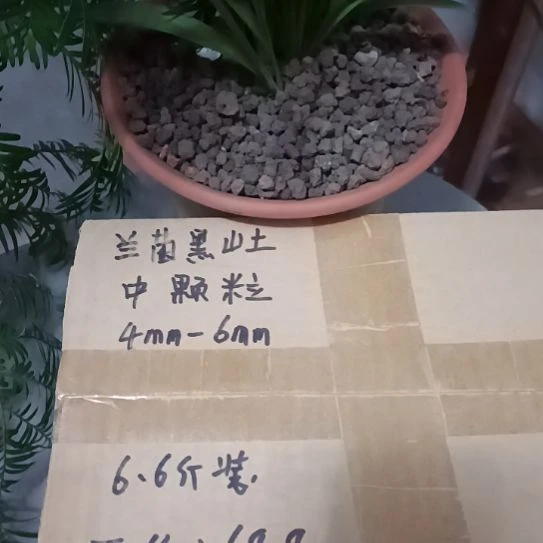 兰菌黑山土
中颗粒
4mm-6mm
6.6斤装.